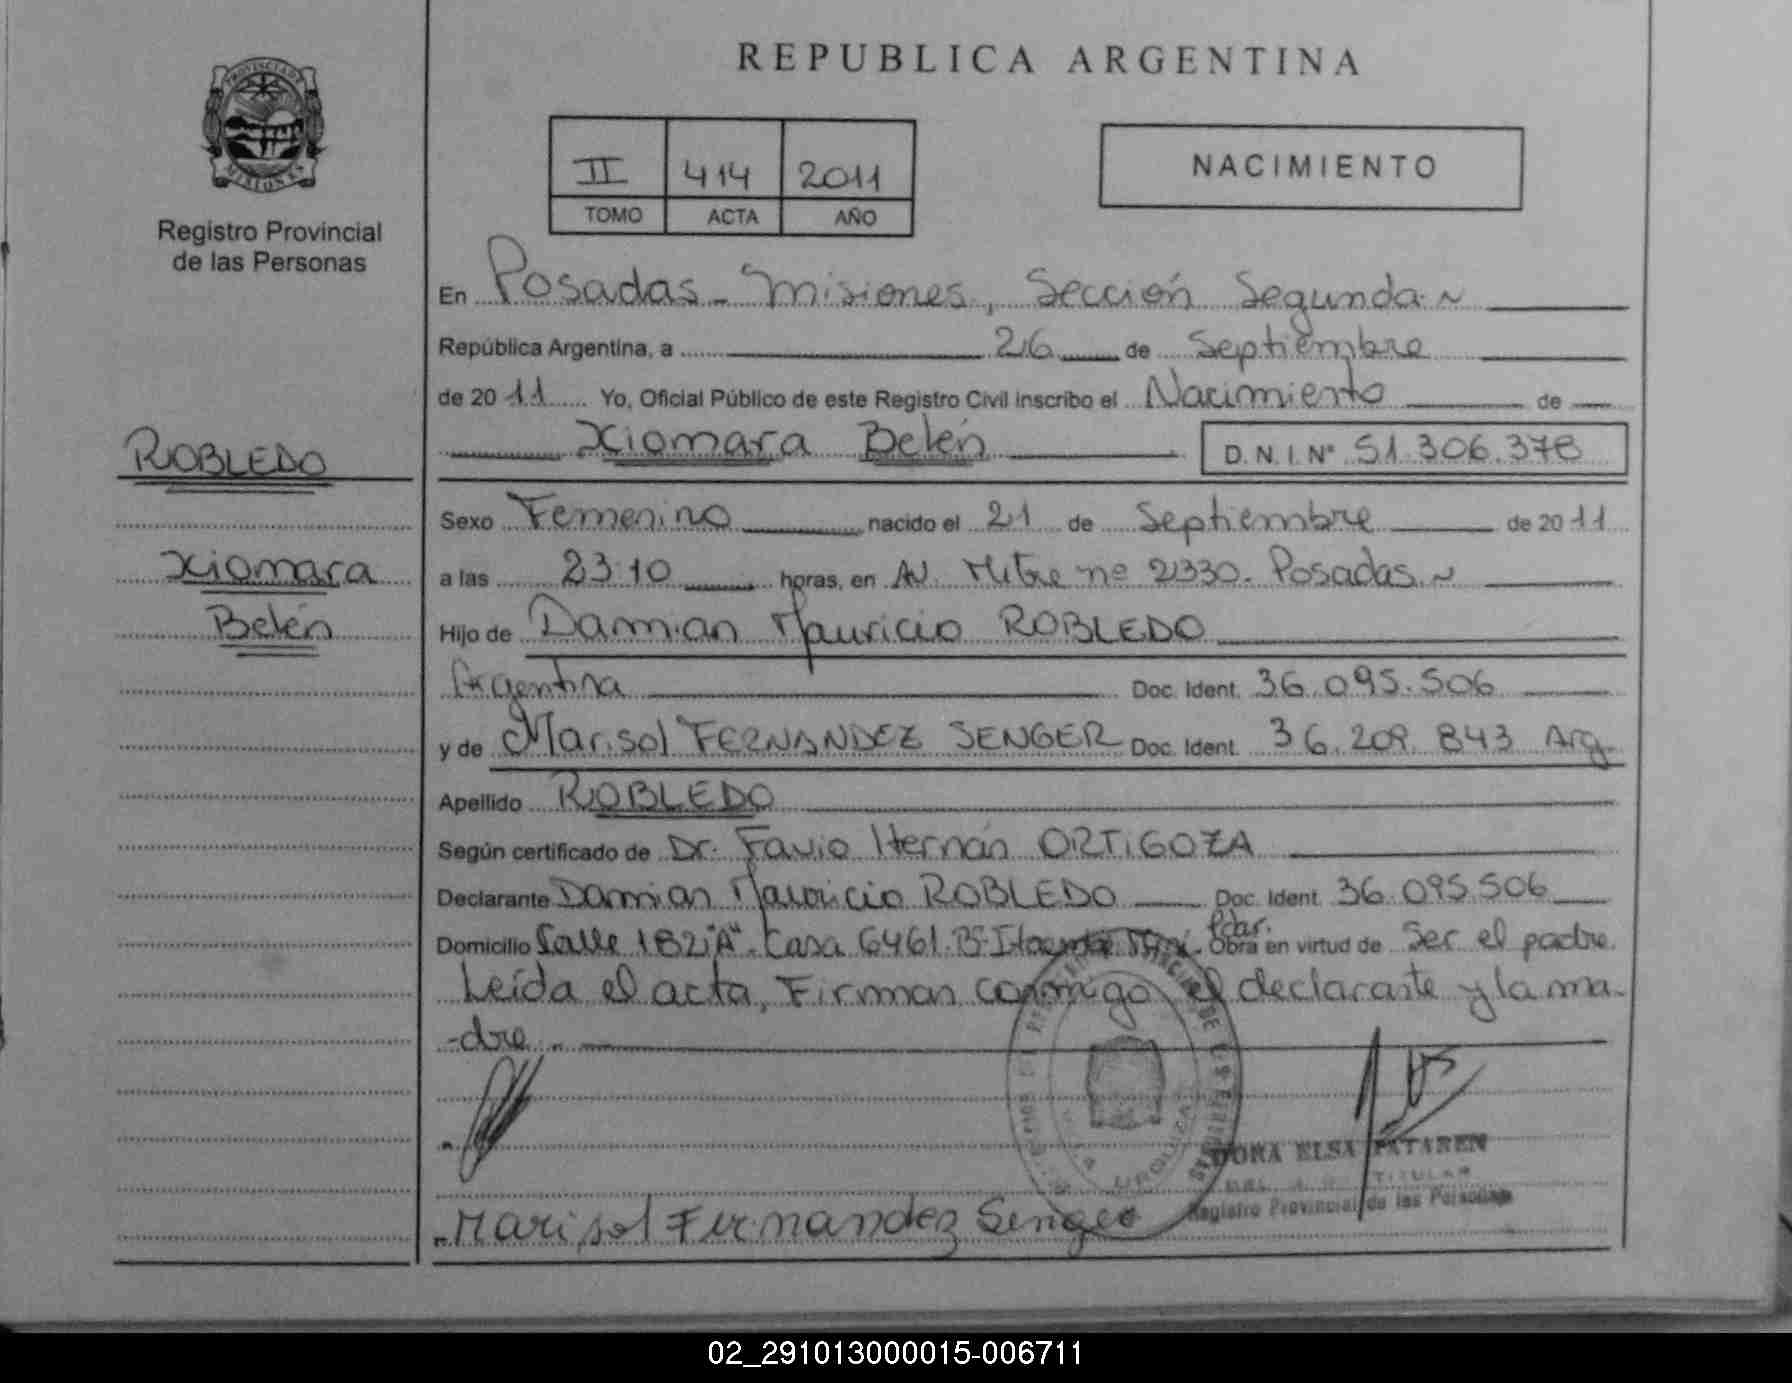 PROVINCIA DE
MISIONES
Registro Provincial
de las Personas
ROBLEDO
Xiomara
Belén
REPUBLICA ARGENTINA
II 414 2011
TOMO ACTA AÑO
NACIMIENTO
En Posadas - Misiones, Sección Segunda.~
República Argentina, a 26 de Septiembre
de 2011 Yo, Oficial Público de este Registro Civil inscribo el Nacimiento de
Xiomara Belén D.N.I.Nº 51.306.378
Sexo Femenino nacido el 21 de Septiembre de 2011
a las 23:10 horas, en Av. Mitre nº 2330. Posadas.~
Hijo de Damian Mauricio ROBLEDO
Argentina Doc. Ident. 36.095.506
y de Marisol FERNANDEZ SENGER Doc. Ident. 36.209.843 Arg.
Apellido ROBLEDO
Según certificado de Dr. Favio Hernán ORTIGOZA
Declarante Damian Mauricio ROBLEDO Doc. Ident. 36.095.506
Domicilio Calle 182"A". Casa 6461. Bº Itaembé Miní. Pdas. Obra en virtud de Ser el padre.
Leída el acta, Firman conmigo, el declarante y la ma-
-dre.-
VILLA URQUIZA
DORA ELSA PATAREN
TITULAR
Registro Provincial de las Personas
Marisol Fernandez Senger
02_291013000015-006711